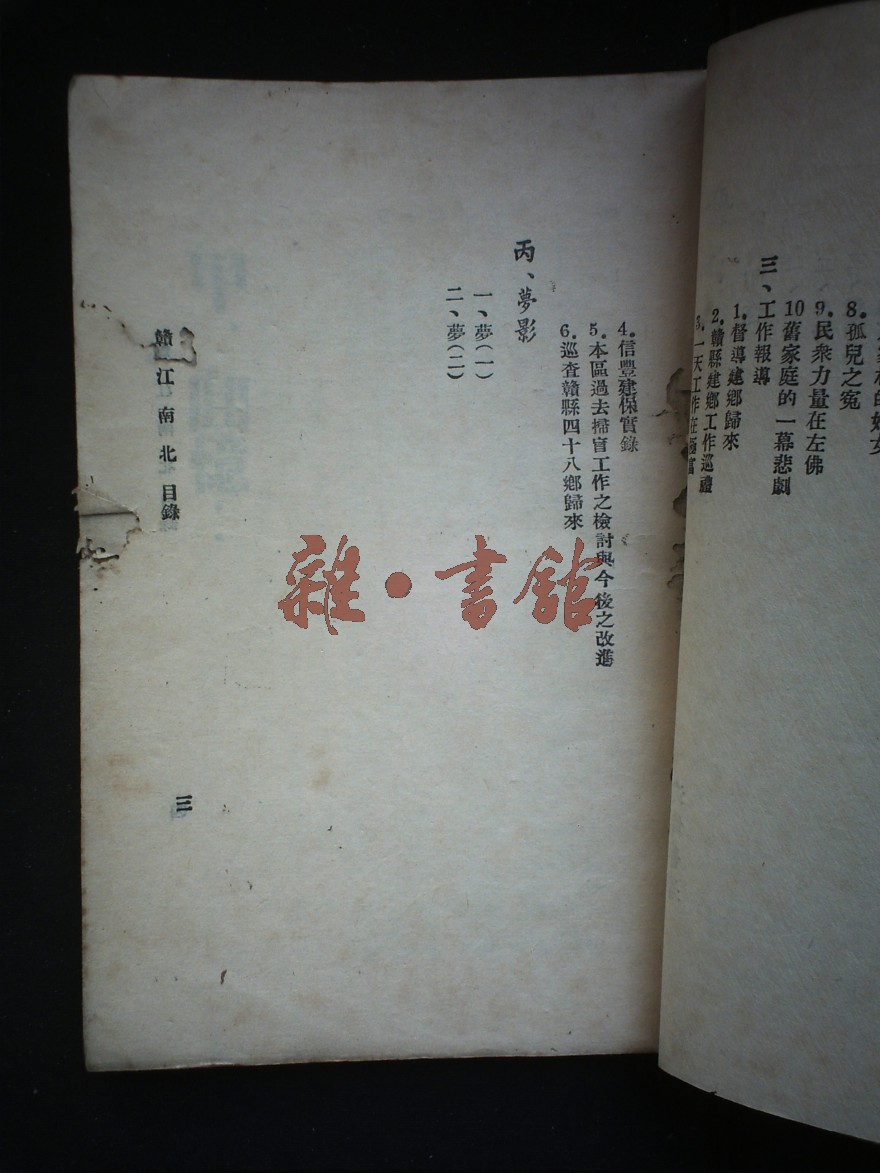 8.孤兒之寃
9.民衆力量在左佛
10舊家庭的一幕悲劇
三、工作報導
1.督導建鄉歸來
2.贛縣建鄉工作巡禮
3.一天工作在極富
4.信豐建保實錄
5.本區過去掃盲工作之檢討與今後之改進
6.巡查贛縣四十八鄉歸來
丙、夢影
一、夢(一)
二、夢(二)
贛江南北 目錄
三
雜·書館